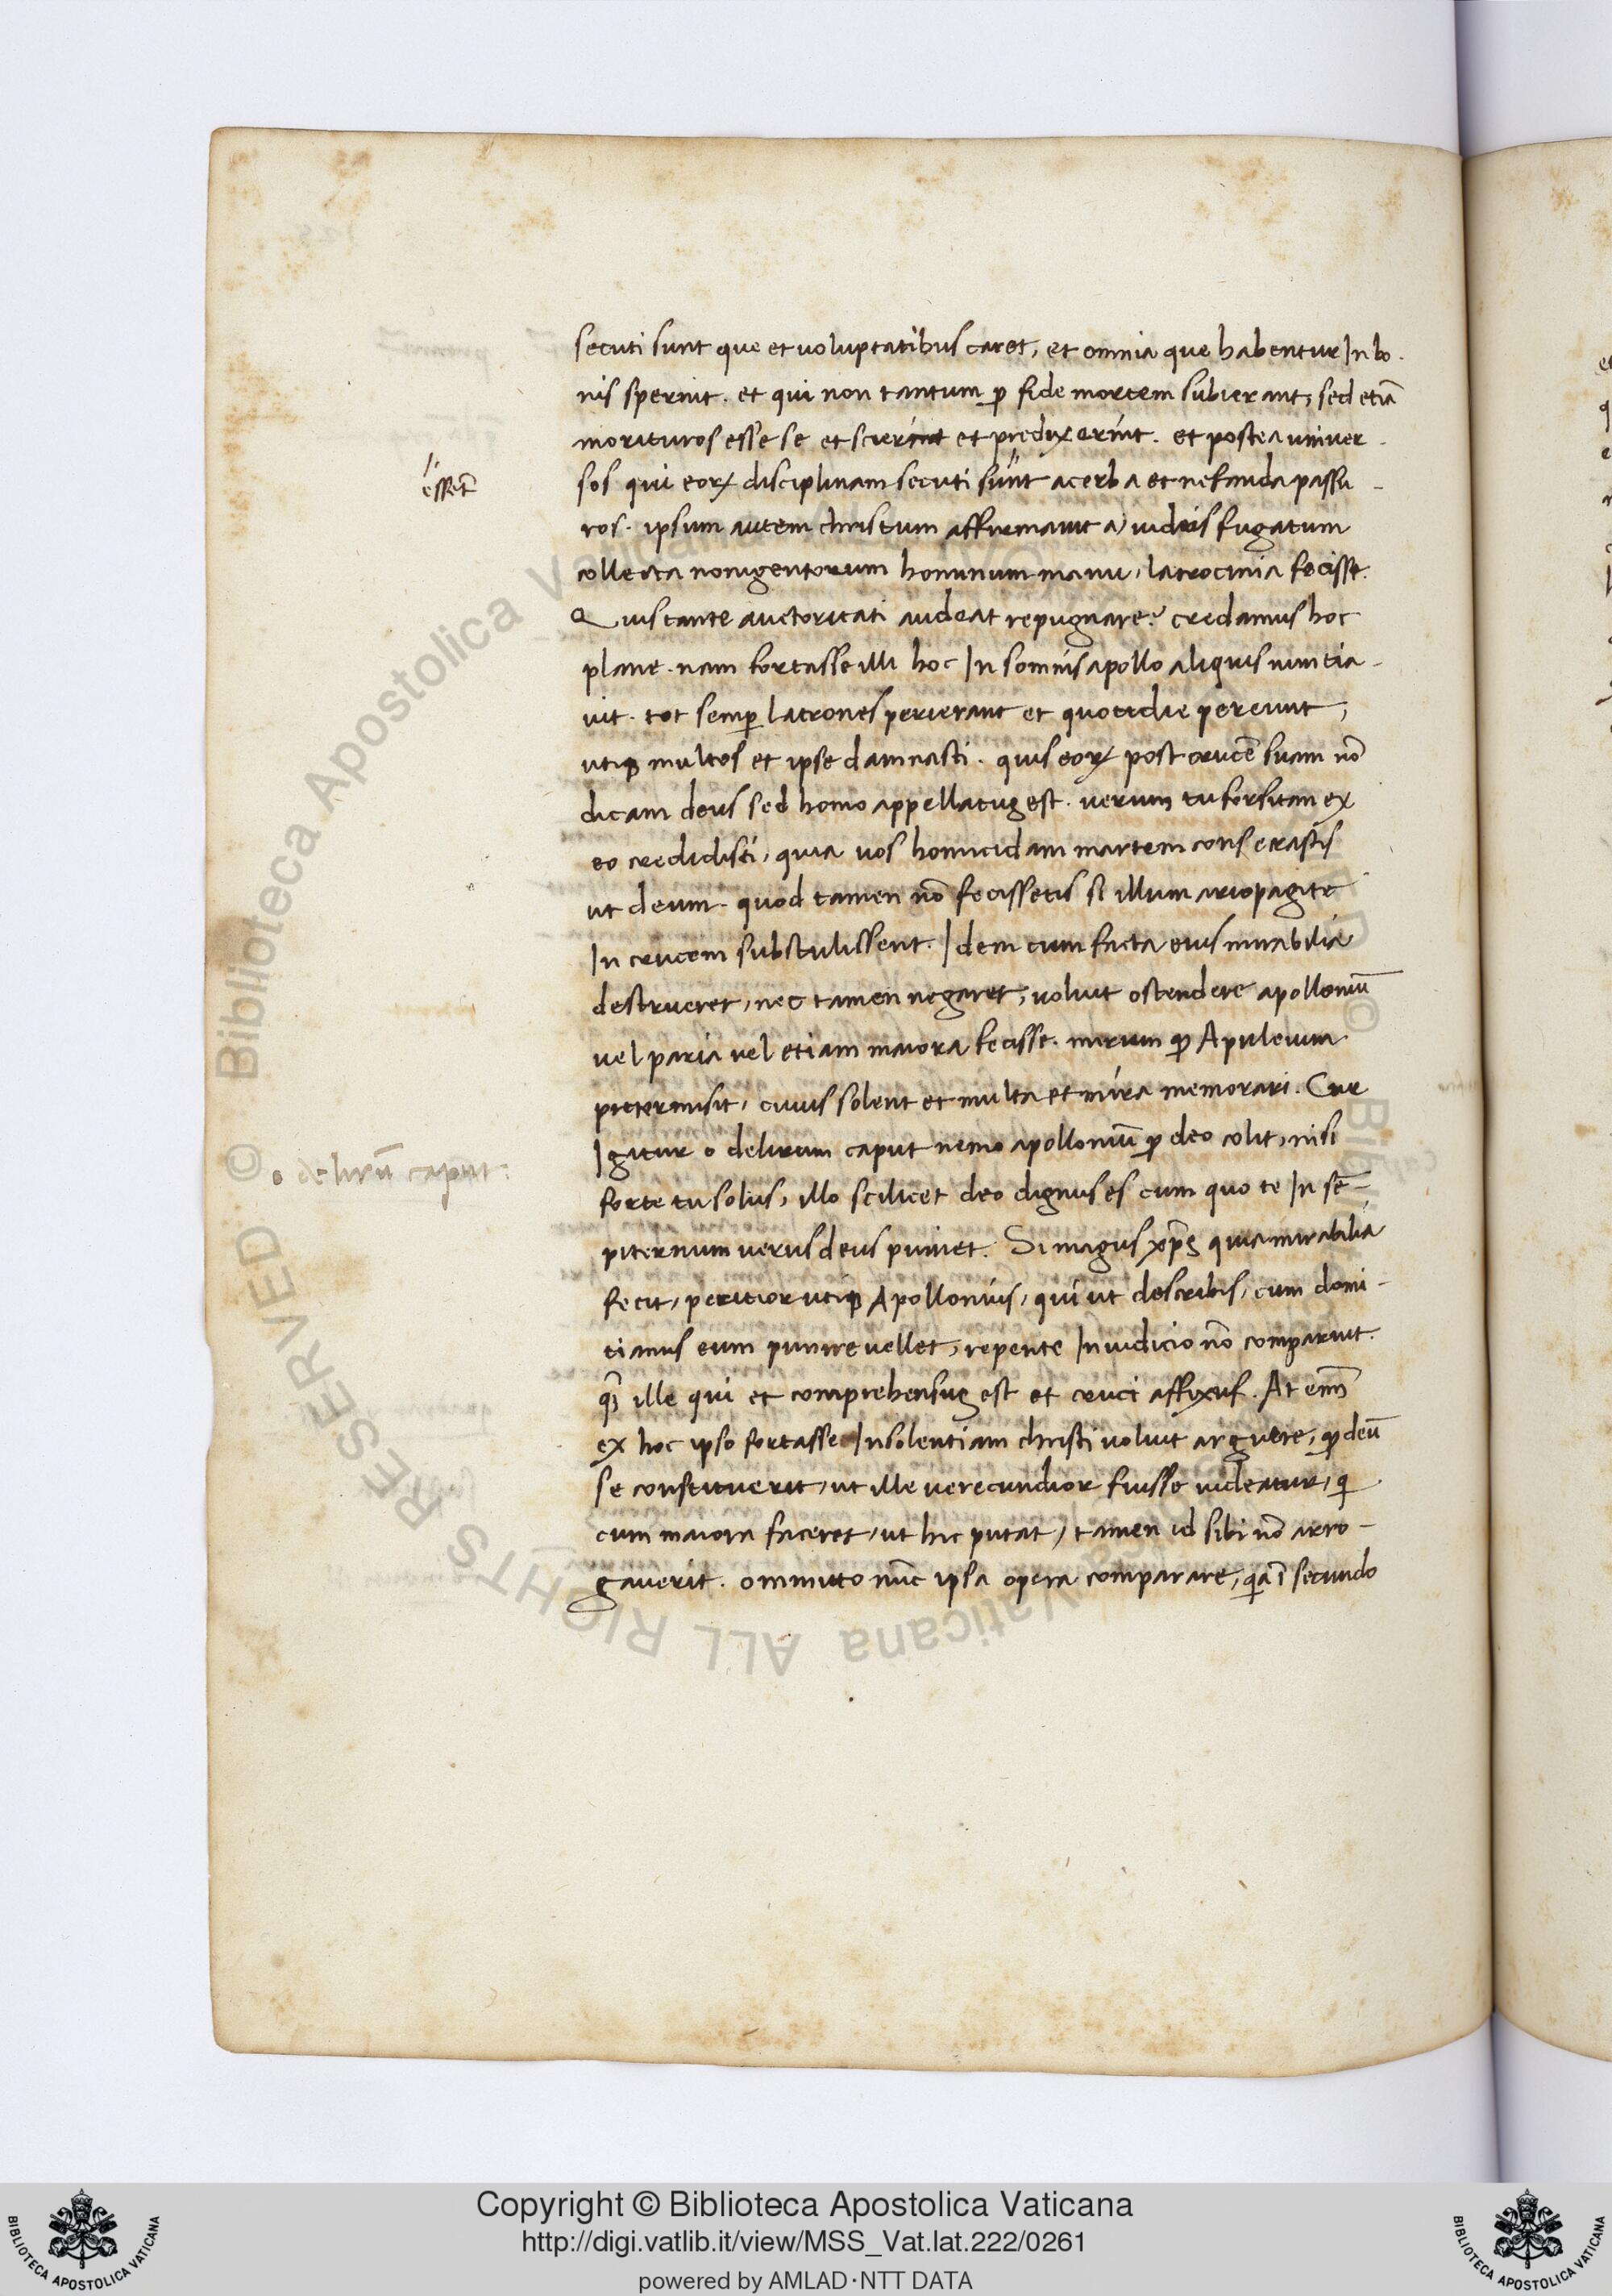 secuti sunt que et uoluptatibus caret, et omnia que habentur In bo-
nis spernit. et qui non tantum ꝓ fide mortem subierant, sed etiã
morituros esse se et scierint et predixerint. et postea uniuer-
essẽt
sos qui eoꝝ disciplinam secuti sunt acerba et nefanda passu-
ros. ipsum autem christum affirmauit a iudeis fugatum
collecta nongentorum hominum manu, latrocinia fecisse.
Quis tante auctoritati audeat repugnare? credamus hoc
plane. nam fortasse illi hoc In somnis apollo aliquis nuntia-
uit. tot semꝑ latrones perierant et quotidie pereunt,
utiqꝫ multos et ipse damnasti. quis eoꝝ post crucẽ suam nõ
dicam deus sed homo appellatuꝯ est. uerum tu forsitan ex
eo credidisti, quia uos homicidam martem consecrastis
ut deum. quod tamen nõ fecissetis si illum ariopagite
In crucem substulissent. Idem cum facta eius mirabilia
destrueret, nec tamen negaret, uoluit ostendere apolloniũ
uel paria uel etiam maiora fecisse. mirum ꝙ Apuleium
pretermisit, cuius solent et multa et mira memorari. Cur
Igitur o delirum caput nemo apolloniũ ꝓ deo colit, nisi
o delirũ caput:
forte tu solus, illo scilicet deo dignus es cum quo te In sẽ-
piternum uerus deus puniet. Si magus xp̃s quia mirabilia
fecit, peritior utiqꝫ Apollonius, qui ut describis, cum domi-
tianus eum punire uellet, repente In iudicio nõ comparuit.
q̃ ille qui et comprehensuꝯ est et cruci affixus. At eniꝫ
ex hoc ipso fortasse Insolentiam christi uoluit arguere, ꝙ deũ
se constituerit, ut ille uerecundior fuisse uideatur, qi
cum maiora faceret, ut hic putat, tamen id sibi nõ arro-
gauerit. ommitto nũc ipsa opera comparare, qia ĩ secundo
Copyright © Biblioteca Apostolica Vaticana
http://digi.vatlib.it/view/MSS_Vat.lat.222/0261
powered by AMLAD·NTT DATA